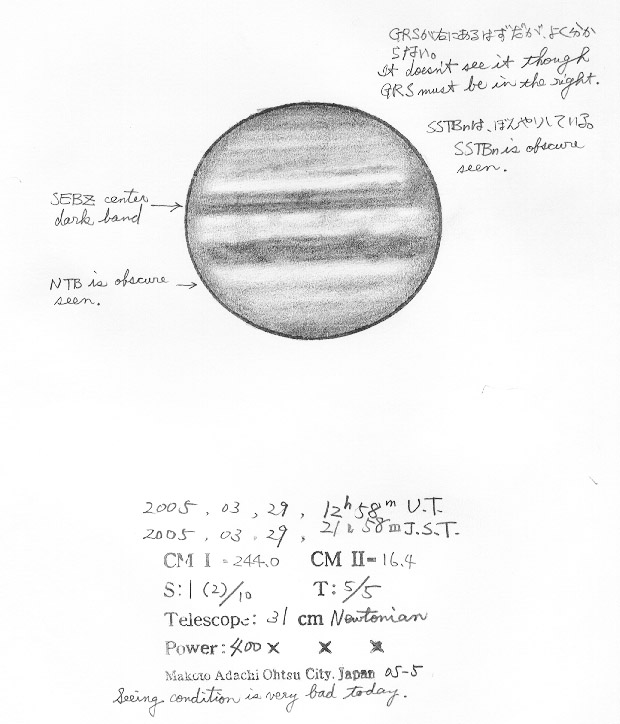 GRSが右にあるはずだが、よく分か
らない。
It doesn't see it though
GRS must be in the right.
SSTBnは、ぼんやりしている。
SSTBn is obscure
seen.
SEBZ center
dark band
NTB is obscure
seen.
2005 . 03 , 29 , 12h 58m U.T.
2005 . 03 . 29 , 21h 58m J.S.T.
CM I = 244.0 CM II= 16.4
S: 1 (2)/10 T: 5/5
Telescope: 31 cm Newtonian
Power: 400 × × ×
Makoto Adachi Ohtsu City. Japan 05-5
Seeing condition is very bad today.